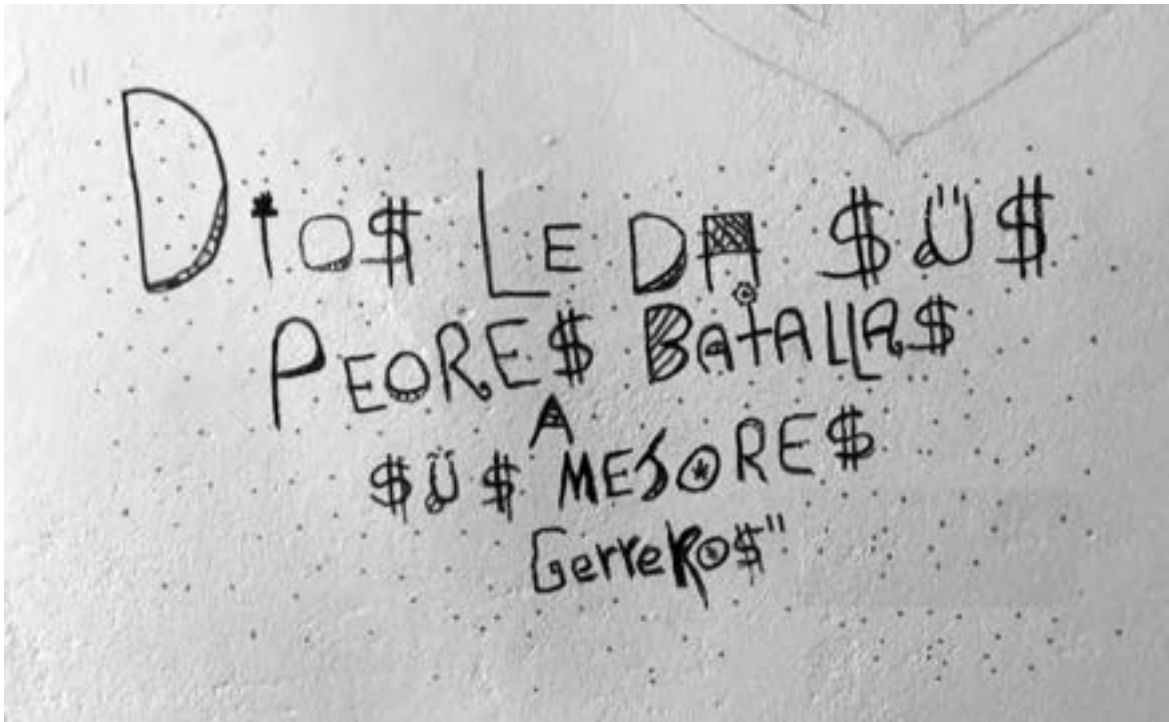 "DIO$ LE DA $Ü$
PEORE$ BATALLA$
A
$Ü$ MEJORE$
GerreRo$"